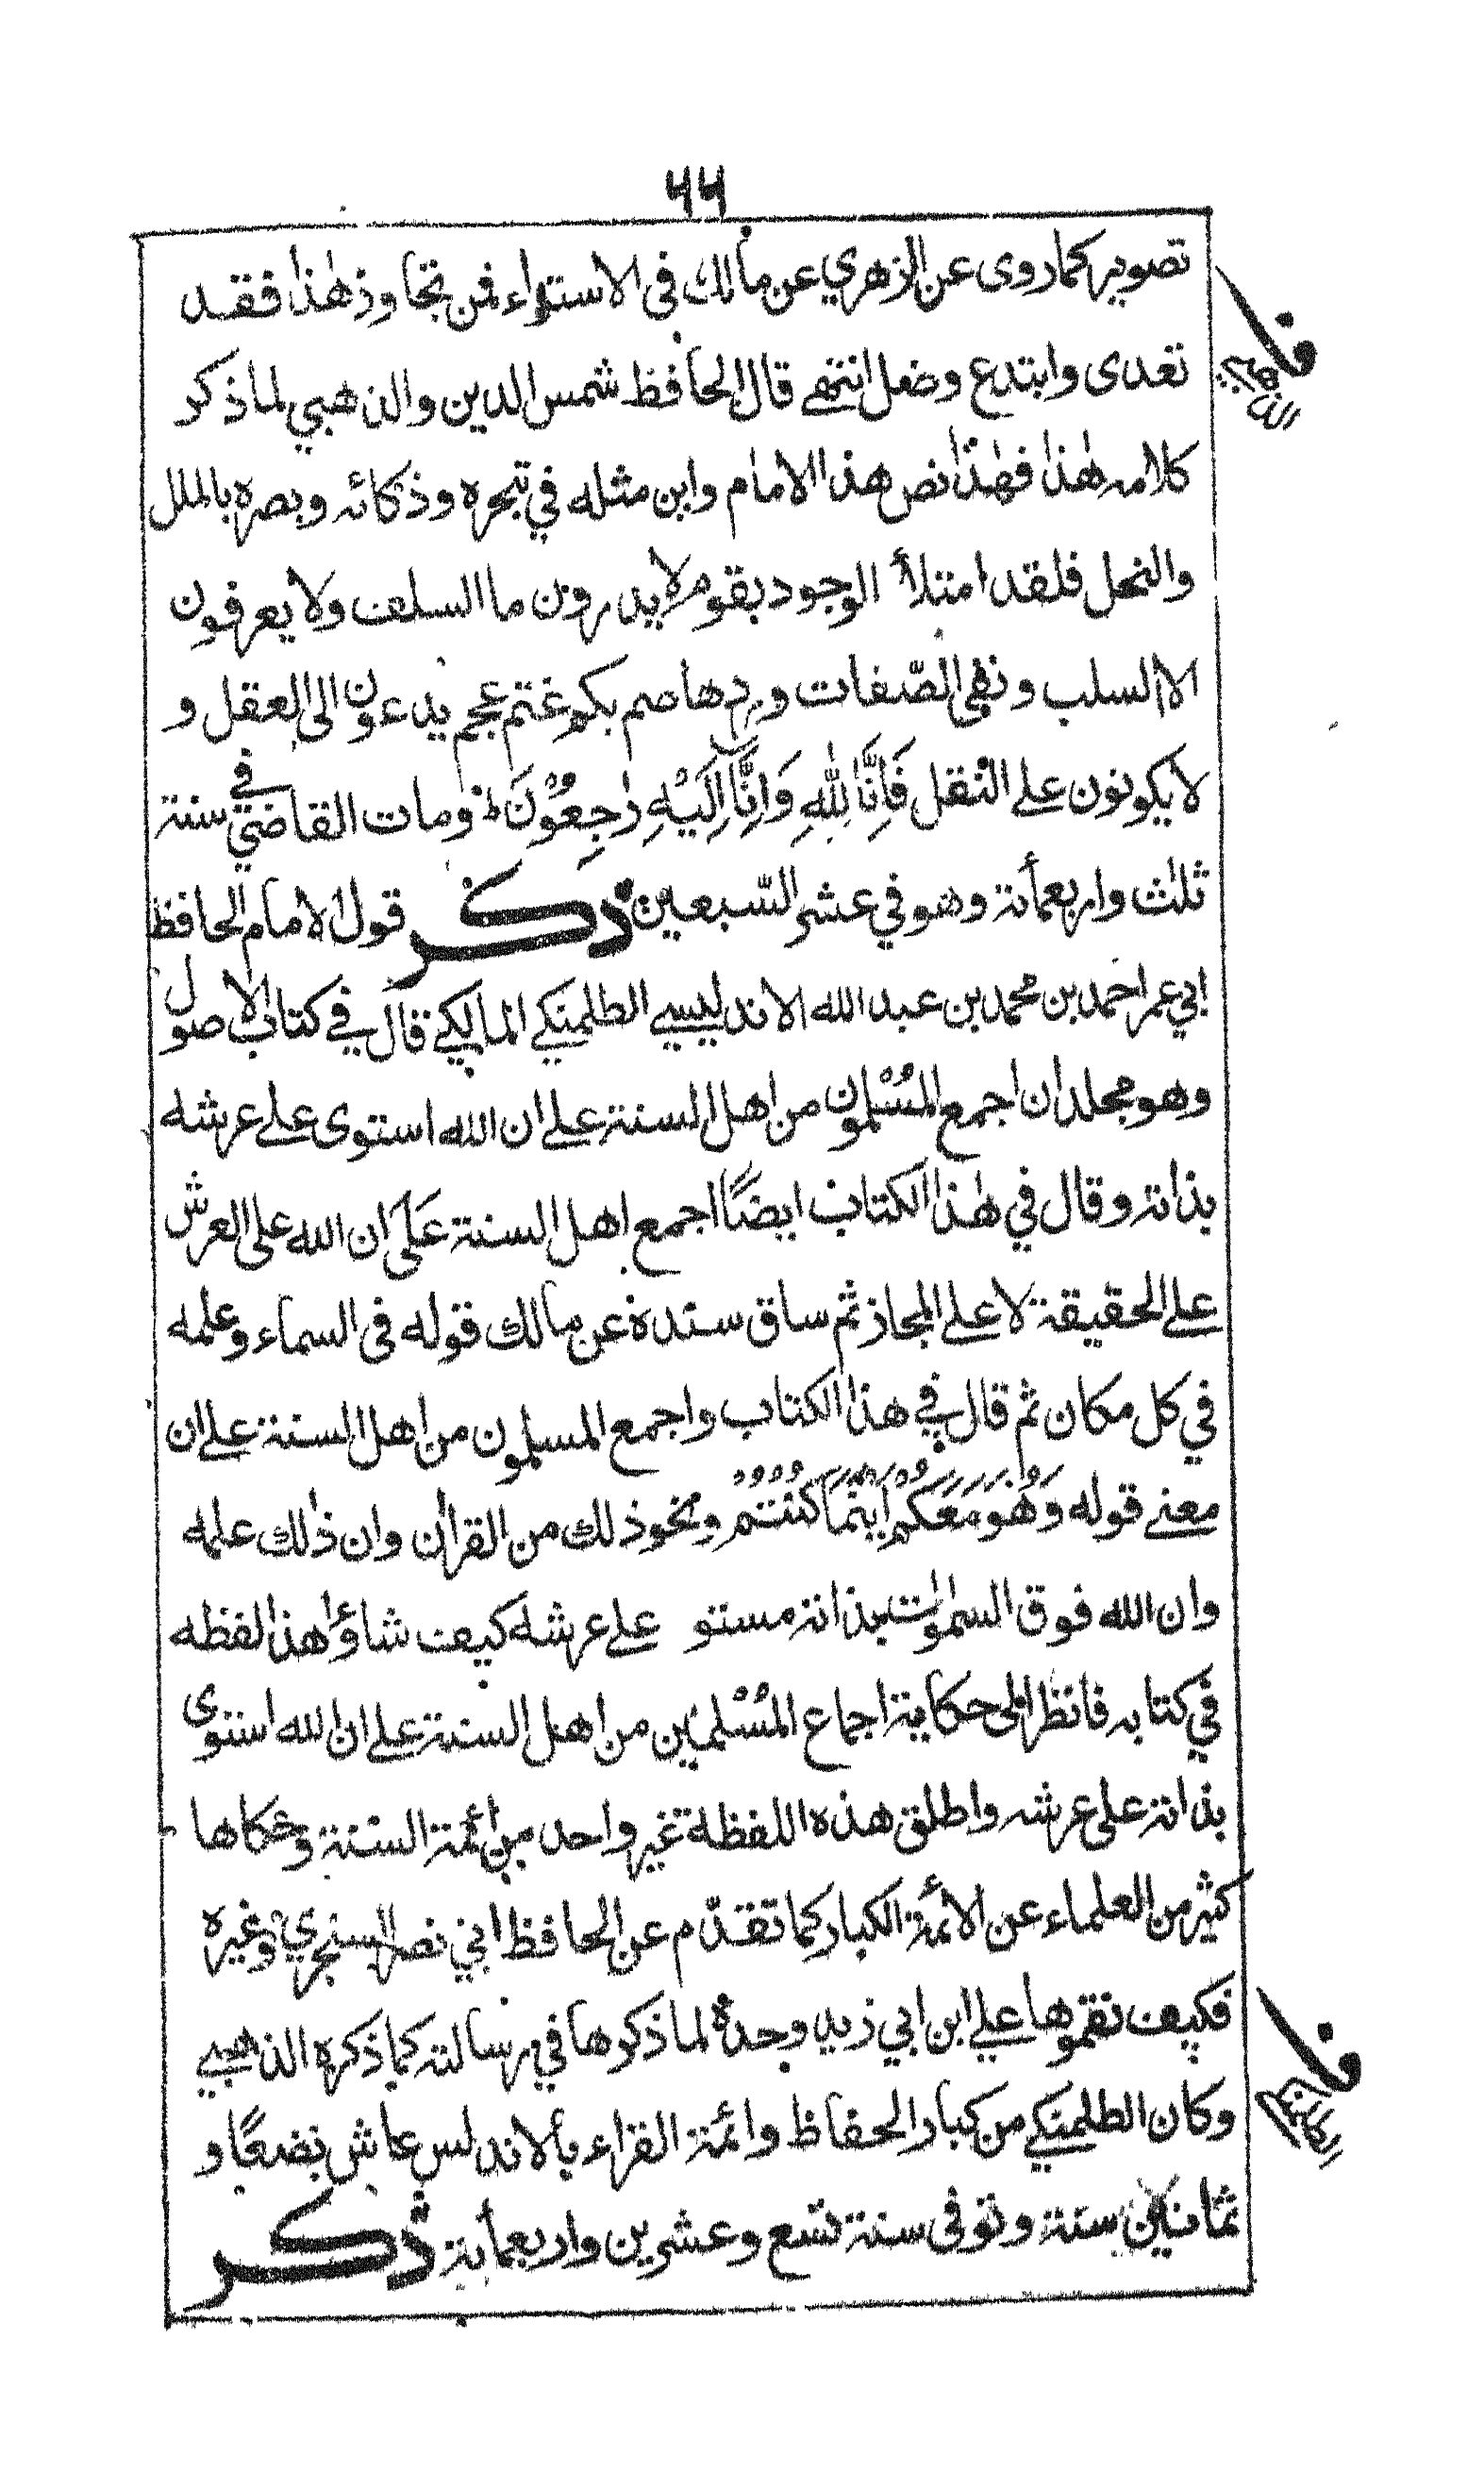 ٦٦
تصوير كما روى عن الزهري عن مالك فى الاستواء فمن تجاوز هٰذا فقد
تعدى وابتدع وضل انتهى قال الحافظ شمس الدين والذهبي لما ذكر
كلامه هٰذا فهٰذا نص هذا الامام واين مثله في تبحره وذكائه وبصره بالملل
والنحل فلقد امتلأ الوجود بقوم لا يدرون ما السلف ولا يعرفون
الا السلب ونفى الصّفات وردها صم بكم غتم عجم يدعون الى العقل و
لا يكونون على النقل فَاِنَّا لِلّٰهِ وَاِنَّا اِلَيْهِ رٰجِعُوْنَ ط ومات القاضي في سنة
ثلٰث واربعمأنة وهو في عشر السّبعين ذكر قول الامام الحافظ
ابي عمر احمد بن محمد بن عبد الله الاندليسي الطلمنكي المالكي قال في كتاب الاصول
وهو مجلدان اجمع المُسْلمون من اهل السنة على ان الله استوى على عرشه
بذاته وقال في هٰذا الكتاب ايضًا اجمع اهل السنة عَلَى ان الله على العرش
على الحقيقة لا على المجاز ثم ساق سنده عن مالك قوله فى السماء وعلمه
في كل مكان ثم قال في هذا الكتاب واجمع المسلمون من اهل السنة على ان
معنى قوله وَهُوَ مَعَكُمْ اَيْنَمَا كُنْتُمْ ونحو ذلك من القراٰن وان ذٰلك علمه
وان الله فوق السمٰوٰت بذاته مستو على عرشه كيف شاؤا هذا لفظه
في كتابه فانظر الى حكاية اجماع المُسْلمين من اهل السنة على ان الله استوى
بذاته على عرشه واطلق هذه اللفظة غير واحد من ائمة السنة وحكاها
كثير من العلماء عن الائمة الكبار كما تقدّم عن الحافظ ابي نصر السنجري وغيره
فكيف نقموها على ابن ابي زيد وحدهٗ لما ذكرها في رسالته كما ذكره الذهبي
وكان الطلمنكي من كبار الحفاظ وائمة القراء بألاندلس عاش بضعًا و
ثمانين سنة وتوفى سنة تسع وعشرين واربعمأية ذكر